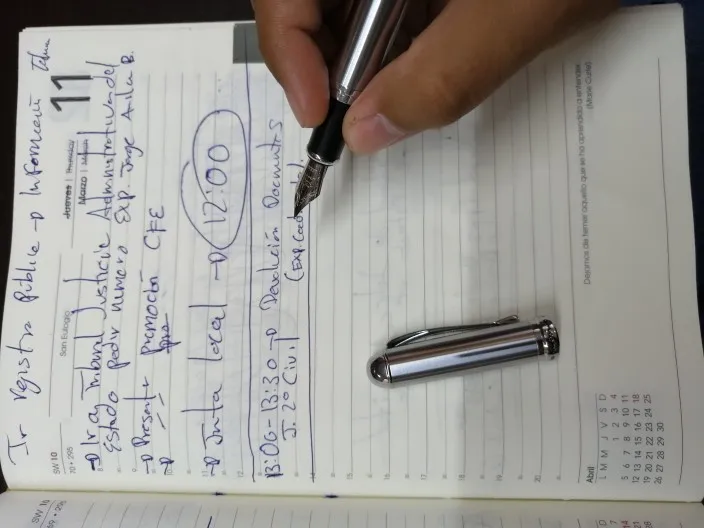 Ir registro Público → Información
SW 10
70 + 295
San Eulogio
Jueves | Thursday
Marzo | March
11
→ Ir a Tribunal Justicia Administrativa del
Estado pedir número Exp. Jorge
→ Presentar promoción CFE
→ Junta local → 12:00
13:00-13:30 → Devolución Documentos
J. 2º Civil
(Exp.
8
9
10
11
12
14
15
16
17
18
19
20
Dejamos de temer aquello que se ha aprendido a entender.
(Marie Curie)
Abril
L M M J V S D
1 2 3 4
5 6 7 8 9 10 11
12 13 14 15 16 17 18
19 20 21 22 23 24 25
26 27 28 29 30
SW 10